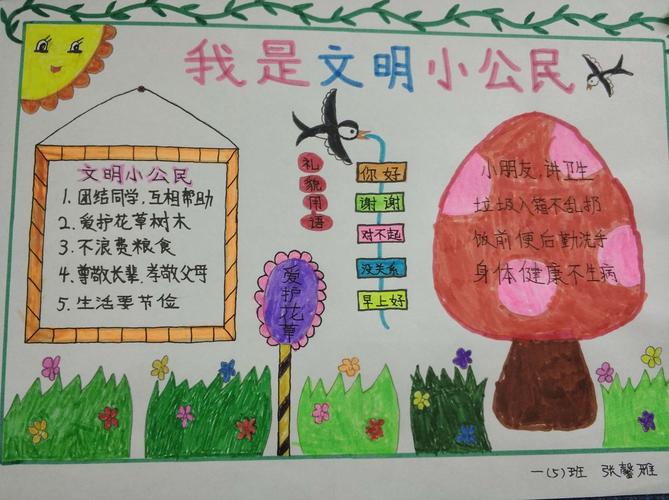 我是文明小公民
文明小公民
1. 团结同学,互相帮助
2. 爱护花草树木
3. 不浪费粮食
4. 尊敬长辈,孝敬父母
5. 生活要节俭
礼貌用语
你好
谢谢
对不起
没关系
早上好
爱护花草
小朋友,讲卫生
垃圾入箱不乱扔
饭前便后勤洗手
身体健康不生病
一(5)班 张馨雅